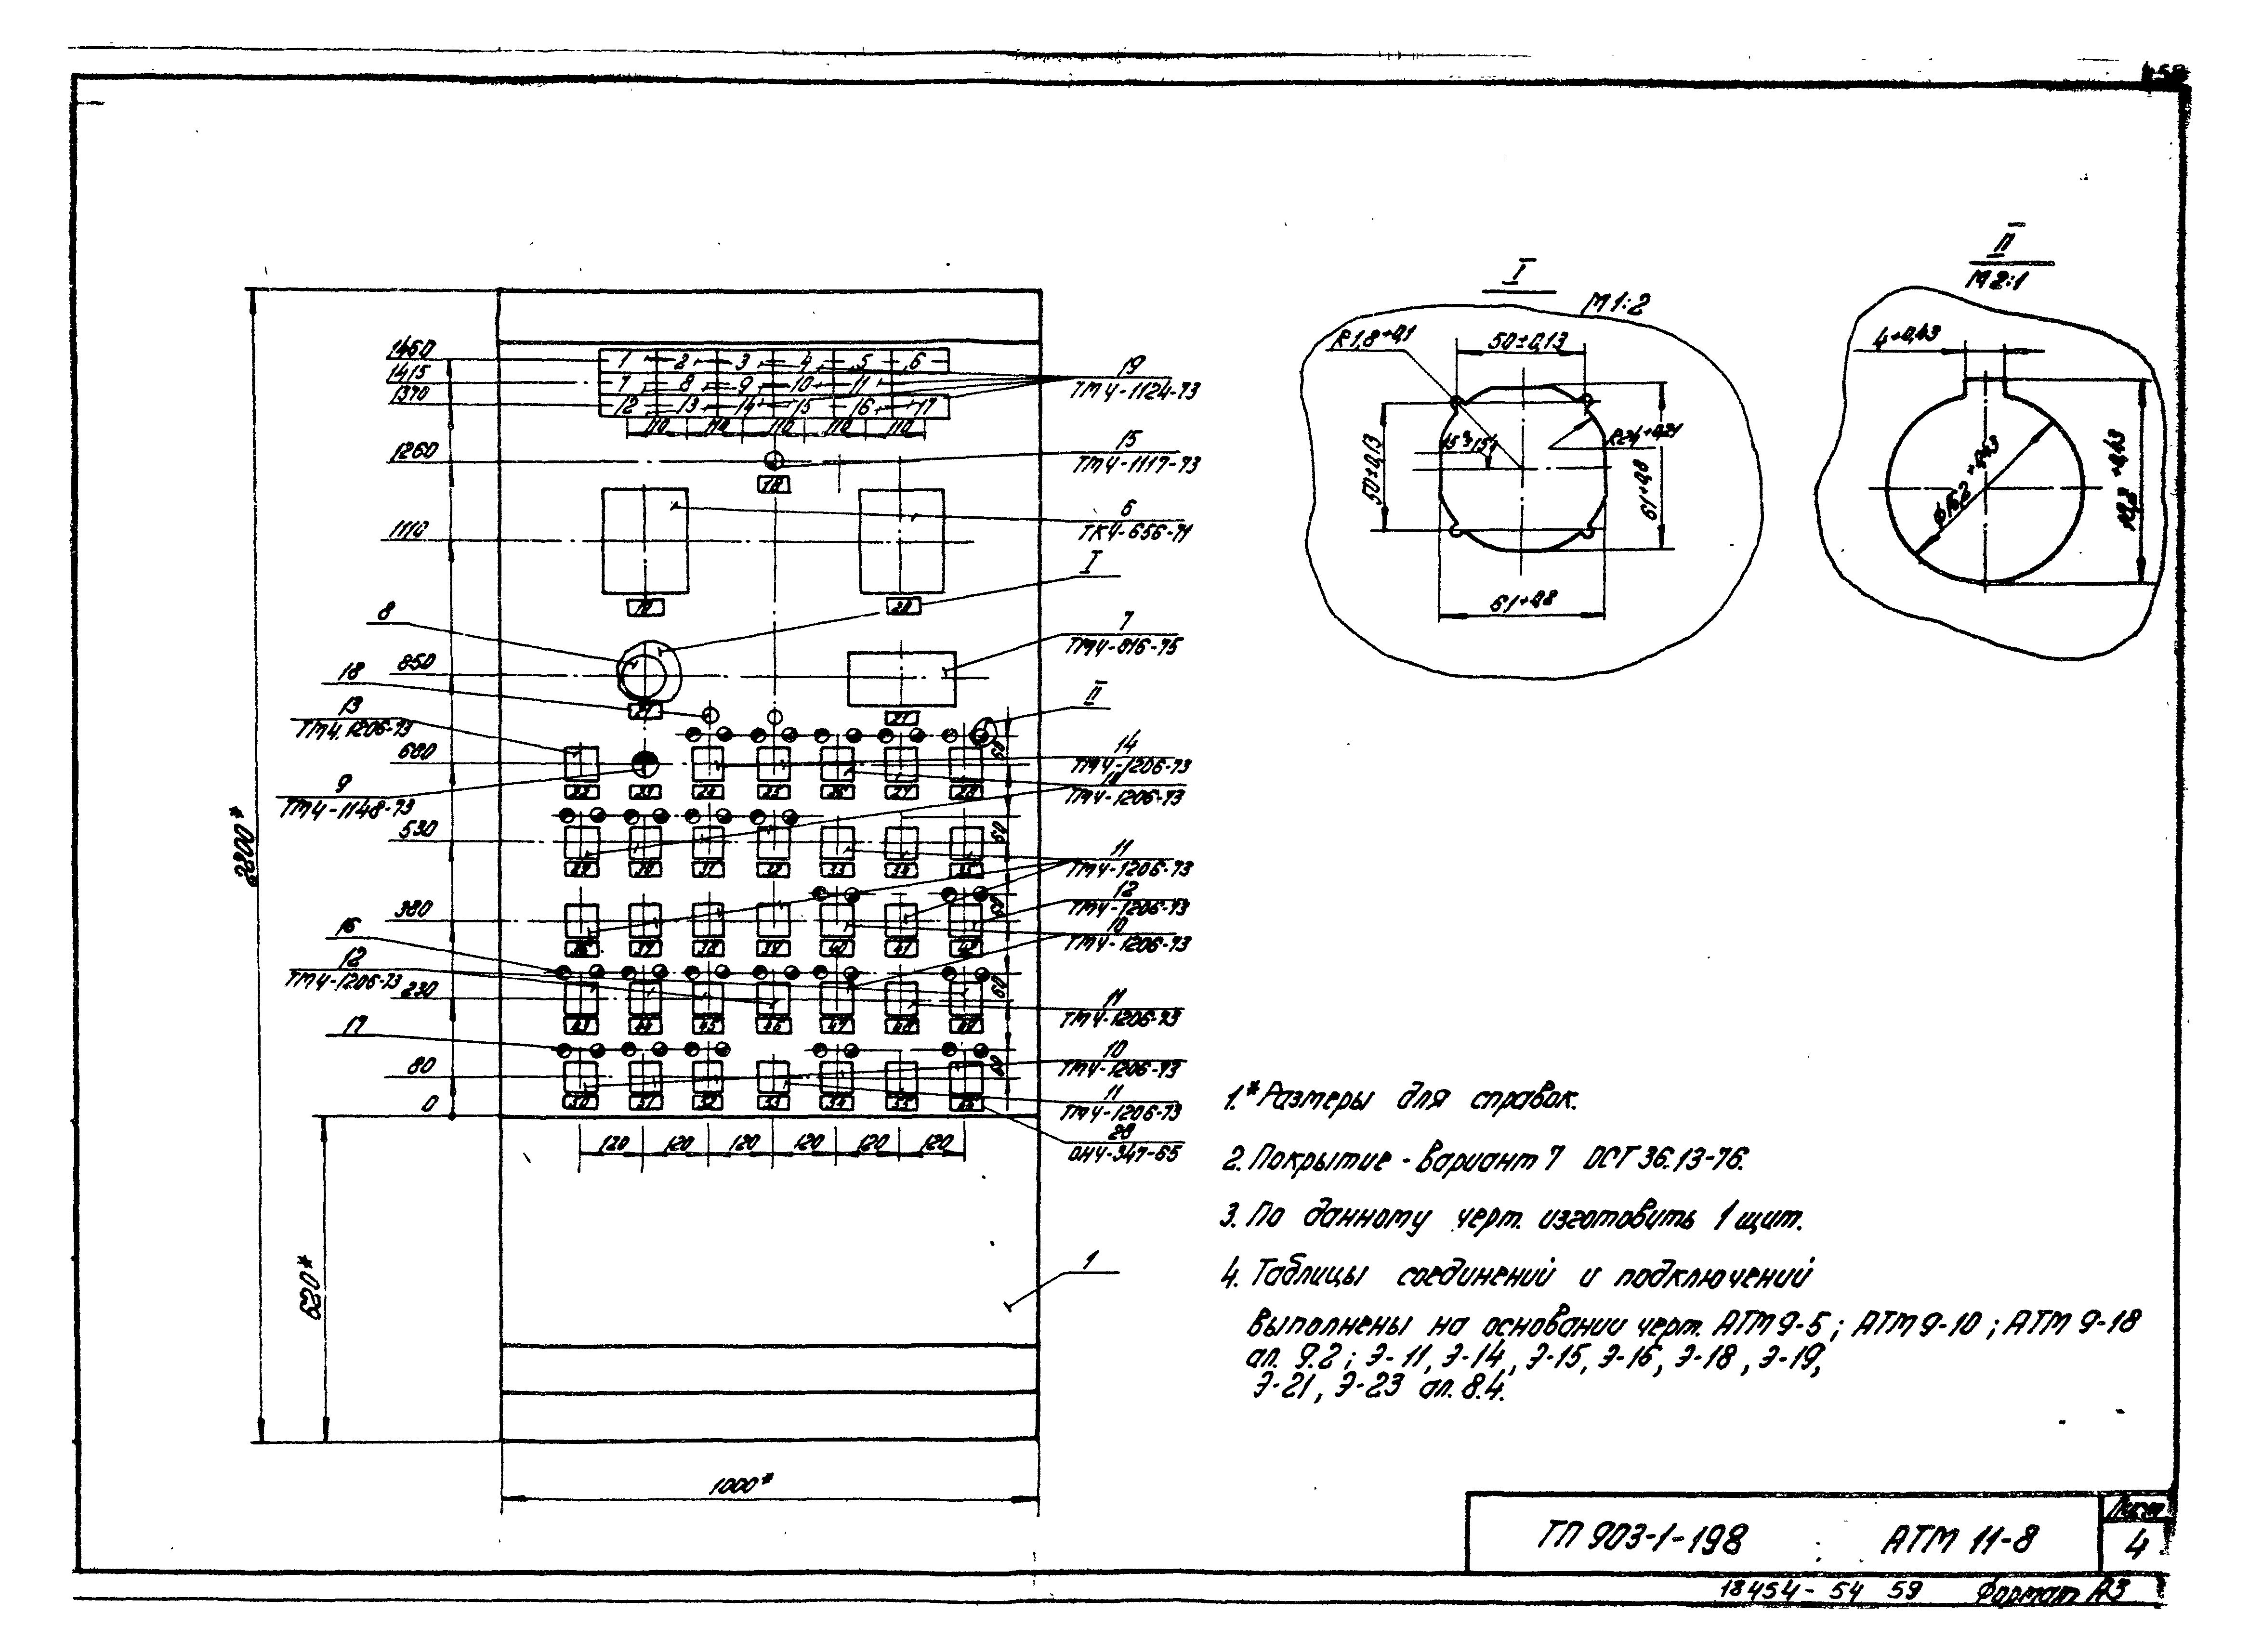 I
М 1:2
R1,8+0,1
50±0,13
50±0,13
61+0,8
61+0,8
II
М 2:1
4+0,43
1460
1415
1370
1260
1110
850
680
530
380
230
80
0
1 2 3 4 5 6
7 8 9 10 11
12 13 14 15 16 17
110 110 110 110 110
18
19
20
19
ТМ4-1124-73
15
ТМ4-1117-73
6
ТК4-656-71
I
7
ТМ4-816-75
II
14
ТМ4-1206-73
ТМ4-1206-73
11
ТМ4-1206-73
12
ТМ4-1206-73
10
ТМ4-1206-73
11
ТМ4-1206-73
10
ТМ4-1206-73
11
ТМ4-1206-73
28
1
8
18
13
ТМ4-1206-73
9
ТМ4-1148-73
16
12
ТМ4-1206-73
17
22 23 24 25 26 27 28
60
60
60
60
60
120 120 120 120 120 120
2200*
620*
1000*
1.*Размеры для справок.
2. Покрытие - Вариант 7 ОСТ 36.13-76.
3. По данному черт. изготовить 1 щит.
4. Таблицы соединений и подключений
выполнены на основании черт. АТМ 9-5; АТМ 9-10; АТМ 9-18
ал. 9.2; Э-11, Э-14, Э-15, Э-16, Э-18, Э-19,
Э-21, Э-23 ал. 8.4.
ТП 903-1-198 АТМ 11-8
Лист
4
18454-54 59 Формат А3